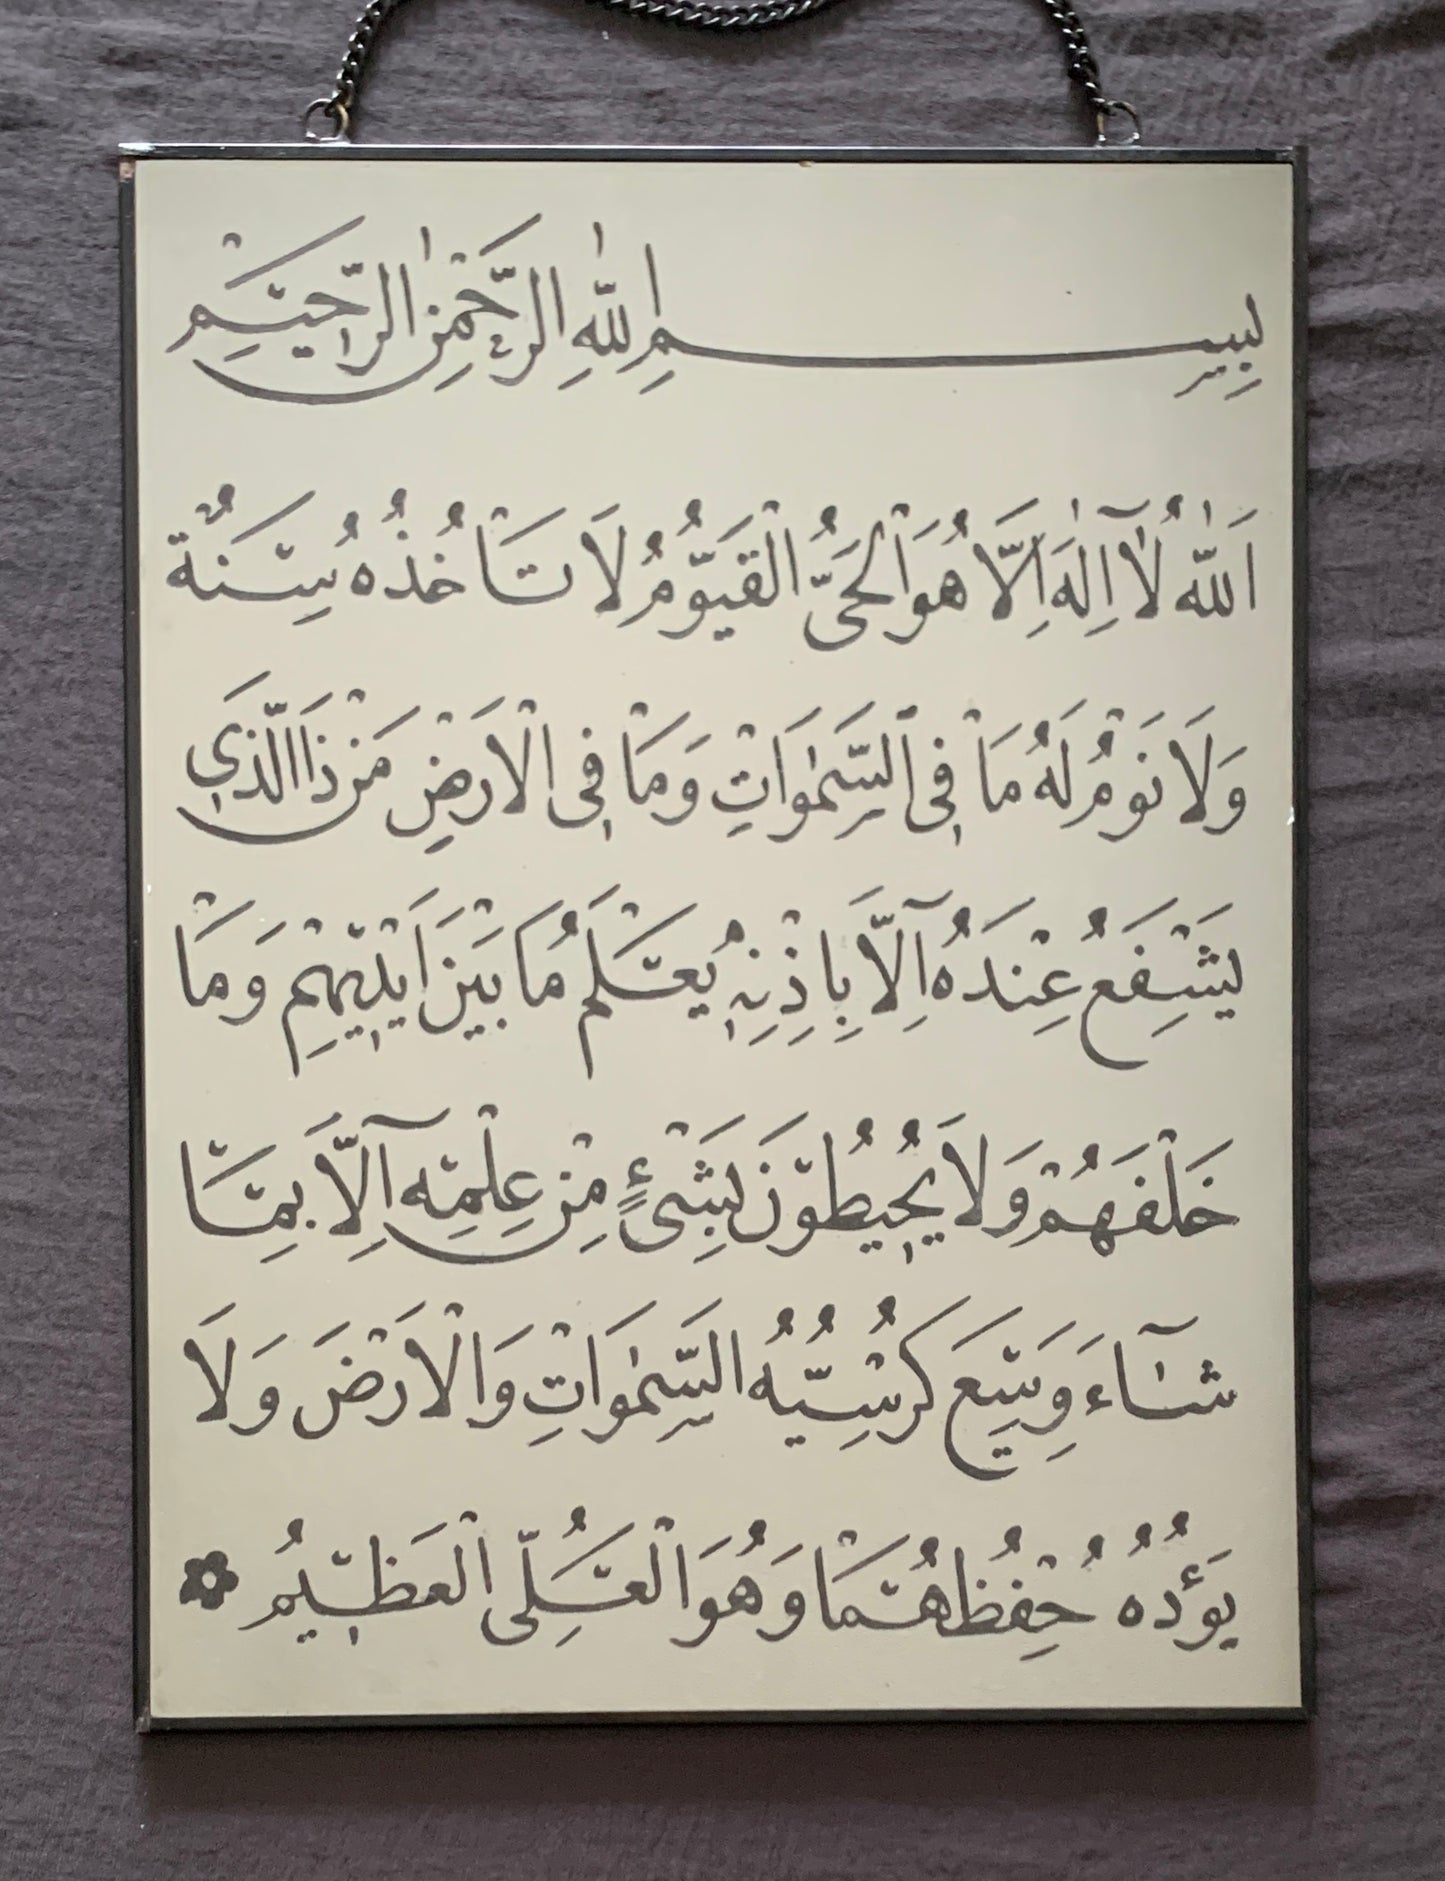 بِسْمِ اللّٰهِ الرَّحْمٰنِ الرَّحِيْمِ
اَللّٰهُ لَآ اِلٰهَ اِلَّا هُوَ الْحَىُّ الْقَيُّوْمُ لَا تَاْخُذُهُ سِنَةٌ
وَلَا نَوْمٌ لَهُ مَا فِى السَّمٰوَاتِ وَمَا فِى الْاَرْضِ مَنْ ذَا الَّذِي
يَشْفَعُ عِنْدَهُ اِلَّا بِاِذْنِهٖ يَعْلَمُ مَا بَيْنَ اَيْدِيْهِمْ وَمَا
خَلْفَهُمْ وَلَا يُحِيْطُوْنَ بِشَىْءٍ مِنْ عِلْمِهٖٓ اِلَّا بِمَا
شَآءَ وَسِعَ كُرْسِيُّهُ السَّمٰوَاتِ وَالْاَرْضَ وَلَا
يَؤُدُهُ حِفْظُهُمَا وَهُوَ الْعَلِىُّ الْعَظِيْمُ